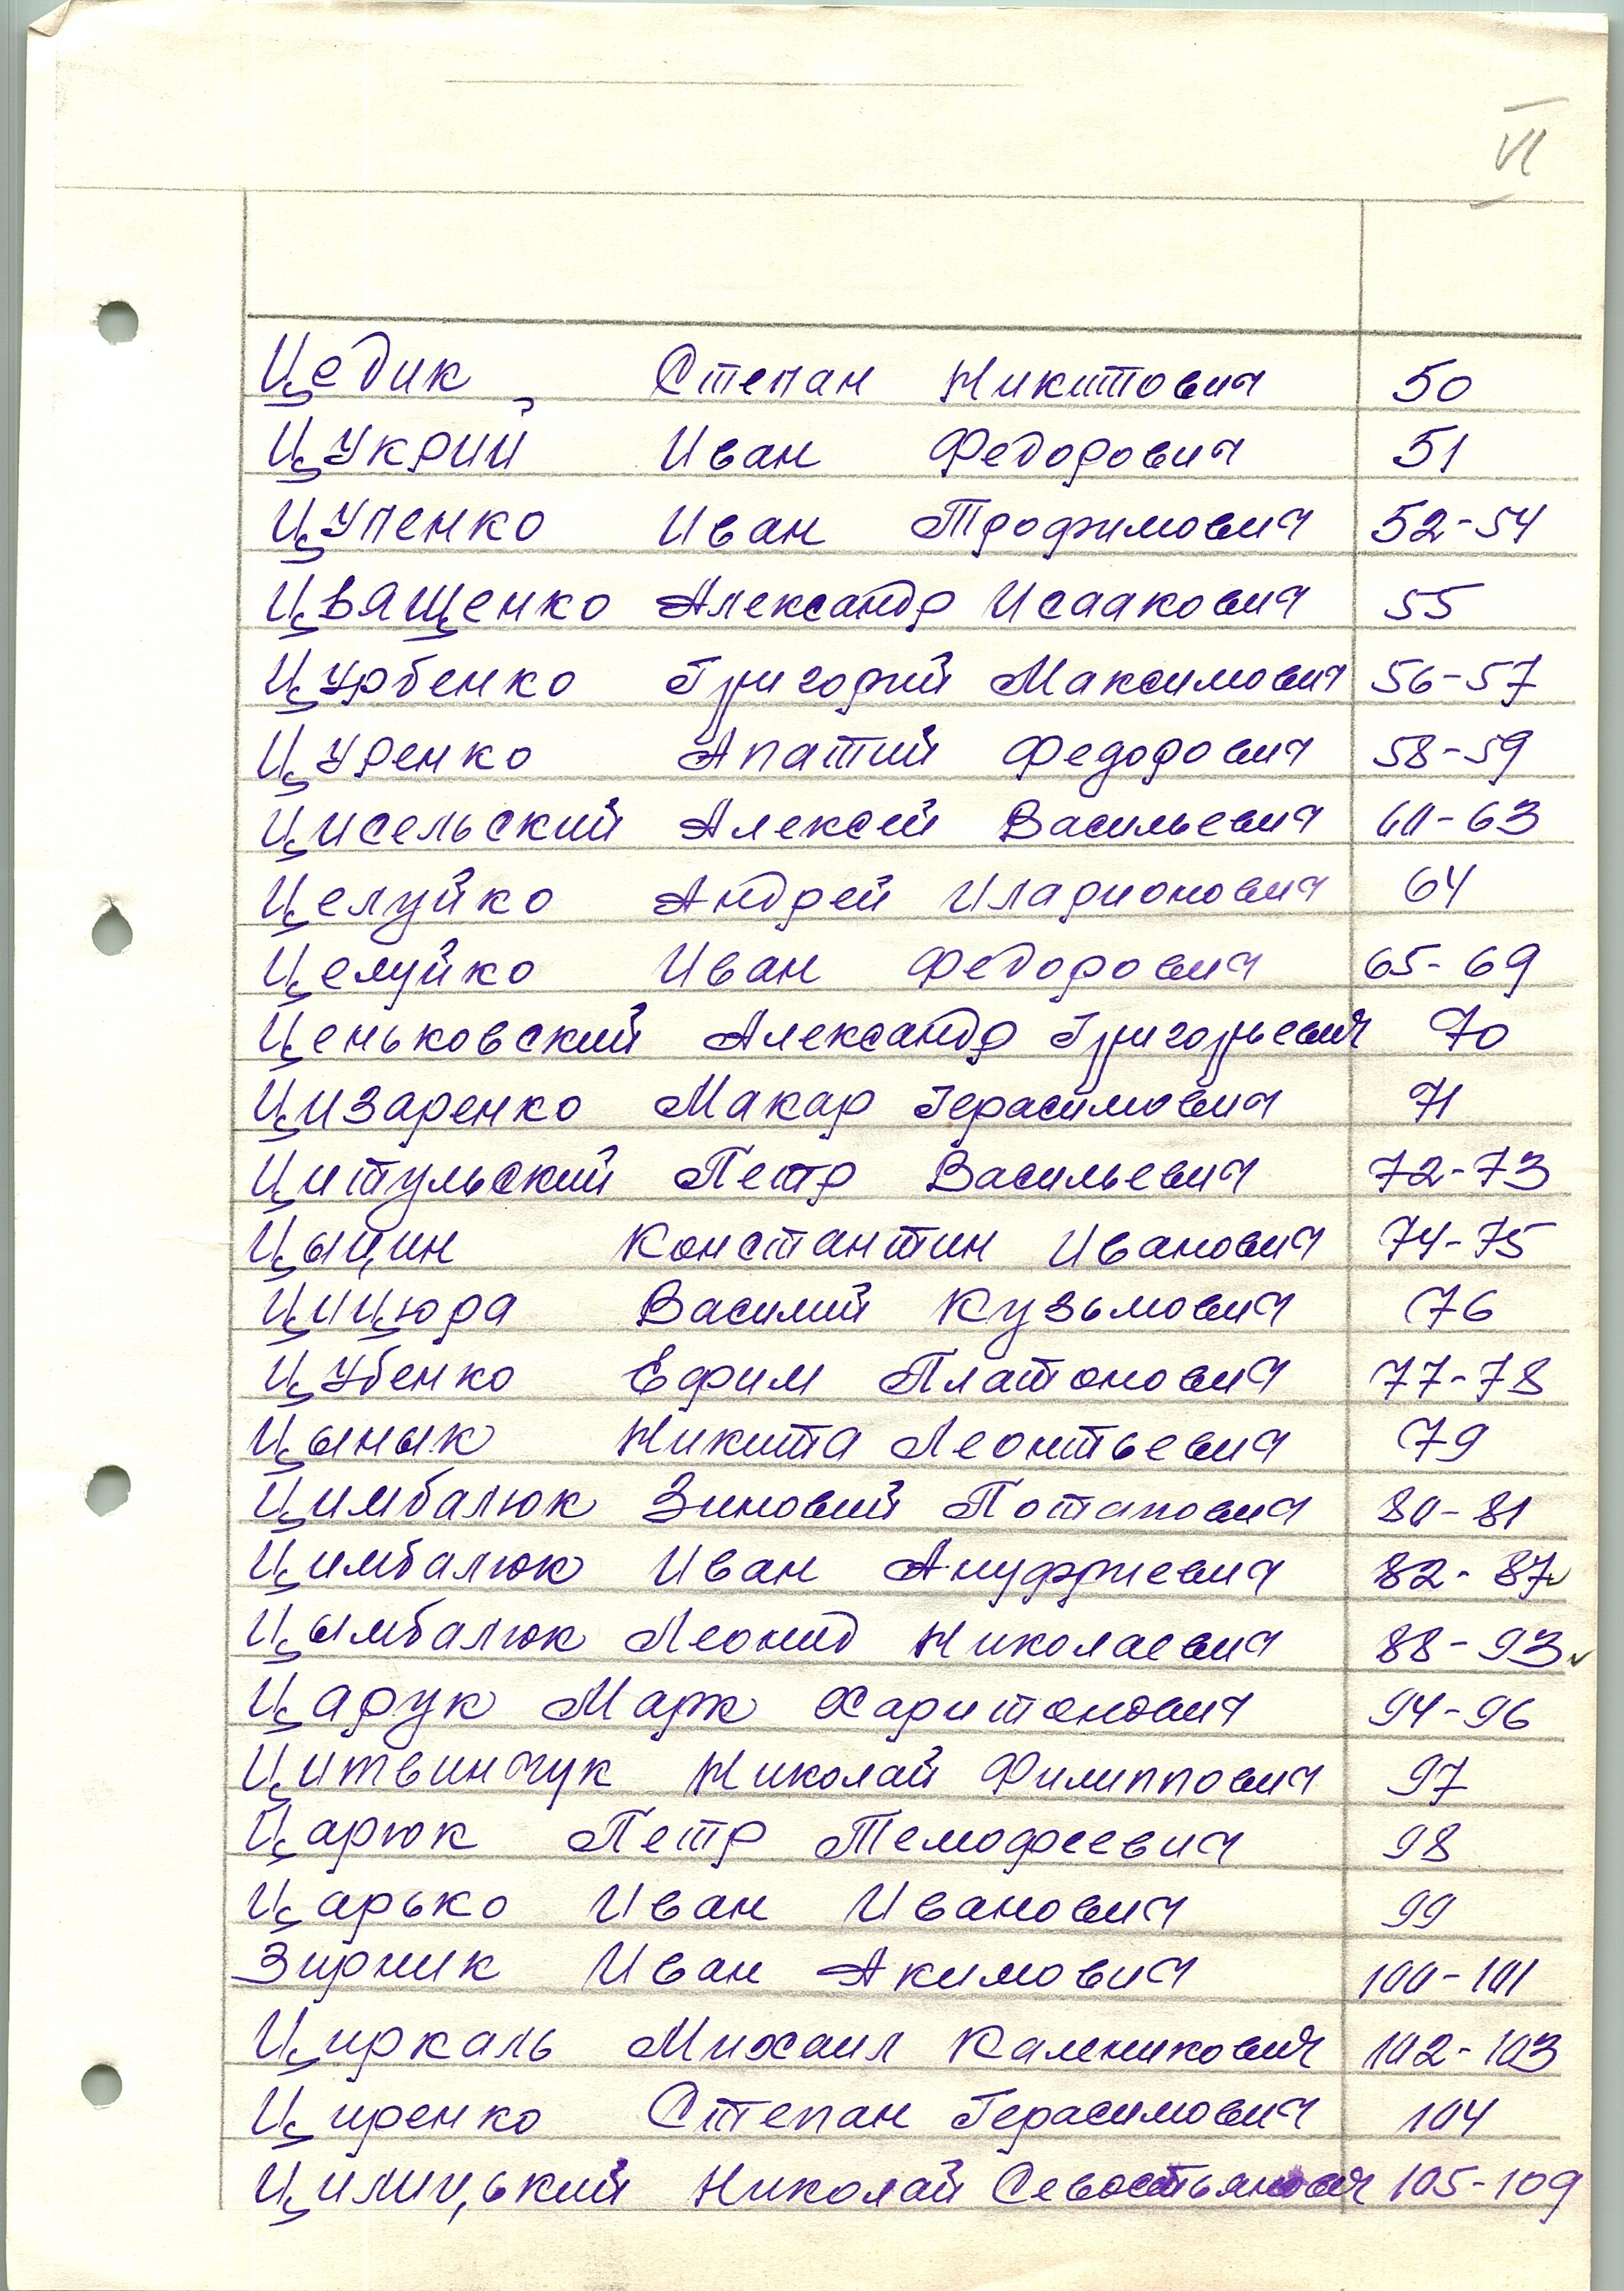 VI
Цедик Степан Никитович 50
Цукрий Иван Федорович 51
Цупенко Иван Трофимович 52-54
Цващенко Александр Исаакович 55
Цурбенко Григорий Максимович 56-57
Цуренко Апатий Федорович 58-59
Цисельский Алексей Васильевич 60-63
Целуйко Андрей Иларионович 64
Целуйко Иван Федорович 65-69
Ценьковский Александр Григорьевич 70
Цизаренко Макар Герасимович 71
Цитульский Петр Васильевич 72-73
Цыцин Константин Иванович 74-75
Цицюра Василий Кузьмович 76
Цубенко Ефим Платонович 77-78
Цынык Никита Леонтьевич 79
Цимбалюк Зиновий Потапович 80-81
Цимбалюк Иван Ануфриевич 82-87
Цымбалюк Леонид Николаевич 88-93
Царук Марк Харитонович 94-96
Цитвинчук Николай Филиппович 97
Царюк Петр Темофеевич 98
Царько Иван Иванович 99
Зирник Иван Акимович 100-101
Циркаль Михаил Каленикович 102-103
Циренко Степан Герасимович 104
Цилицький Николай Севостьянович 105-109